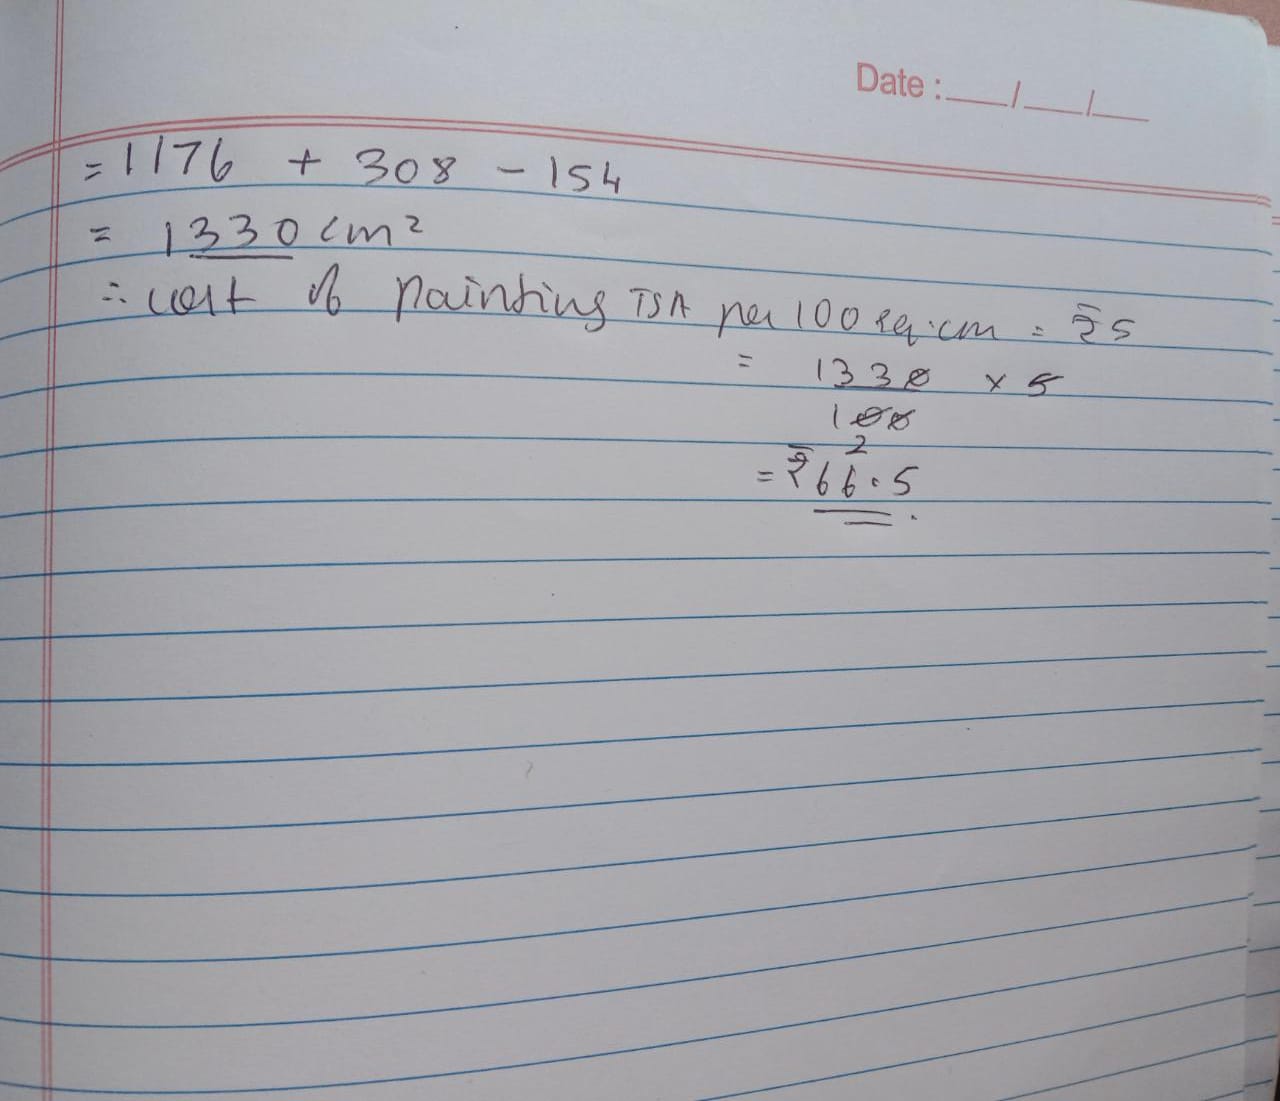 Date : __/__/__
= 1176 + 308 - 154
= 1330 cm²
∴ cost of painting TSA per 100 sq.cm = ₹5
= 1330 × 5
100
2
= ₹66.5